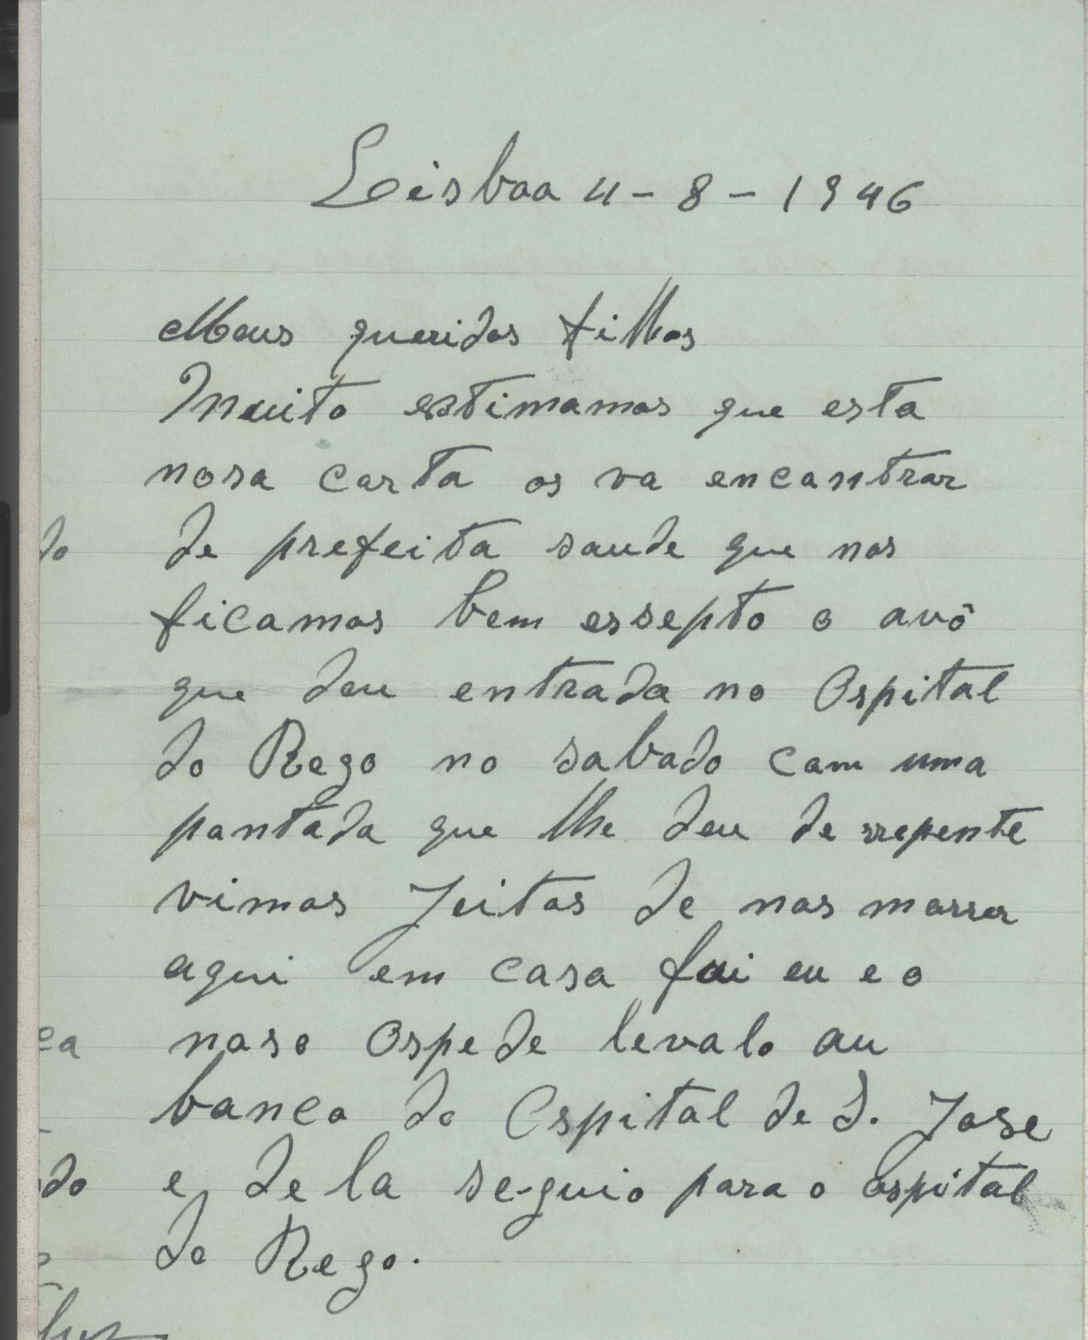 Lisboa 4-8-1946
Meus queridos filhos
Muito estimamos que esta
nosa carta os va encontrar
do
de prefeita saude que nos
ficamos bem essepto o avô
que deu entrada no Ospital
do Rego no sabado com uma
pontada que lhe deu de rrepente
vimos Jeitos de nos morrer
aqui em casa foi eu e o
ca
noso Ospede levalo au
banco do Ospital de S. Jose
do
e de la seguio para o ospital
do Rego.